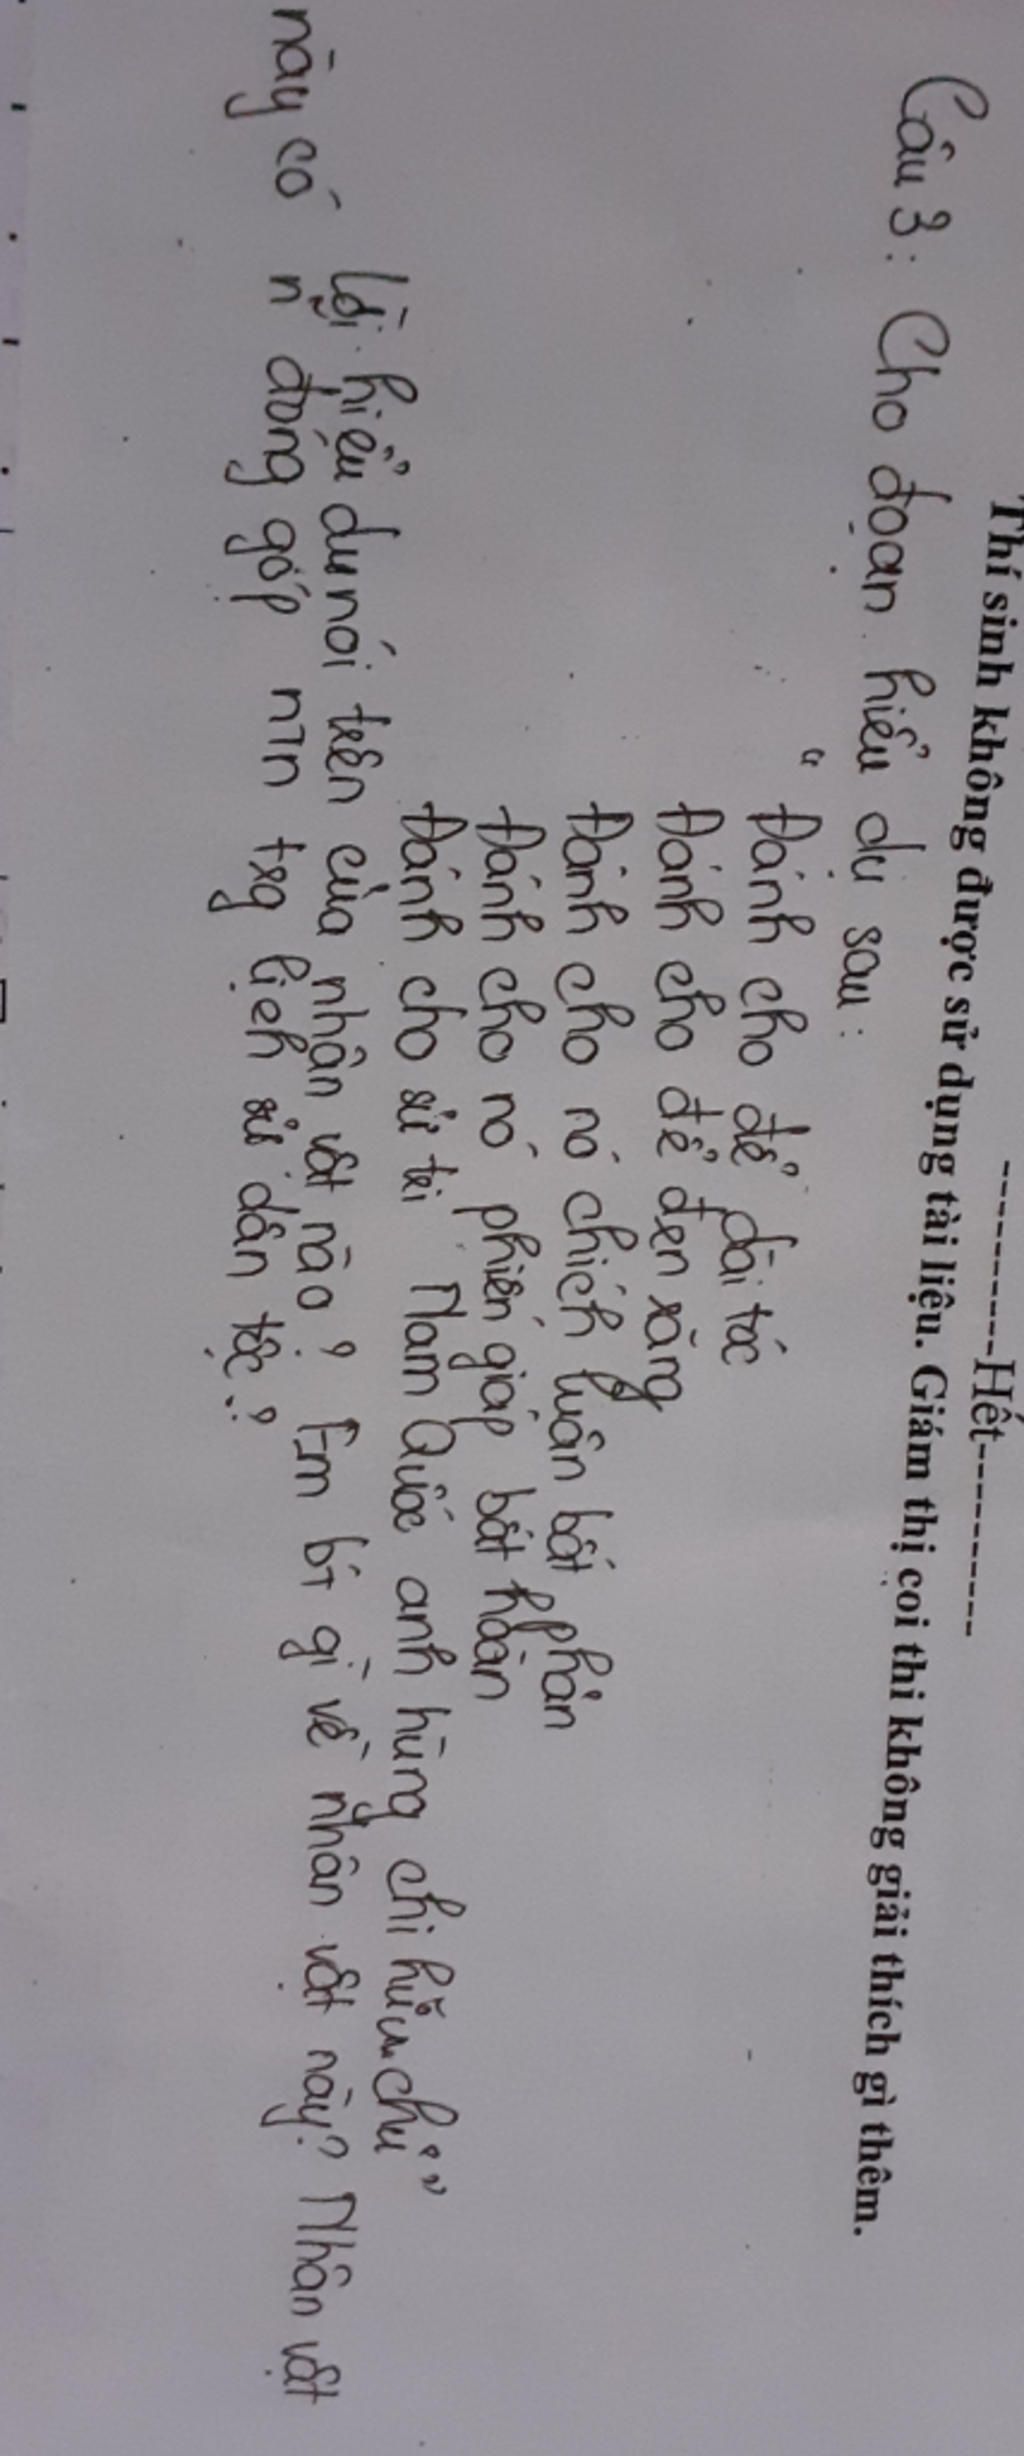 ---------Hết---------
Thí sinh không được sử dụng tài liệu. Giám thị coi thi không giải thích gì thêm.
Câu 3: Cho đoạn hiểu dụ sau:
“ Đánh cho để dài tóc
Đánh cho để đen răng
Đánh cho nó chích luân bất phản
Đánh cho nó phiến giáp bất hoàn
Đánh cho sử tri Nam Quốc anh hùng chi hữu chủ”
Lời hiểu dụ nói trên của nhân vật nào? Em bt gì về nhân vật này? Nhân vật
này có n~ đóng góp ntn trg lịch sử dân tộc?